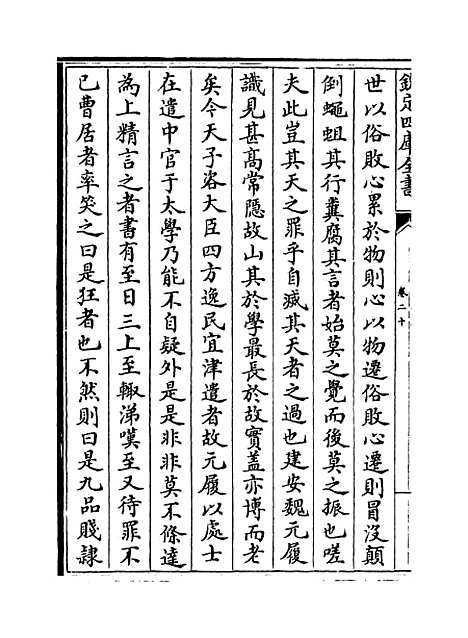 欽定四庫全書
卷二十
世以俗敗心累於物則心以物遷俗敗心遷則冒沒顛
倒蠅蛆其行糞腐其言者始莫之覺而後莫之振也嗟
夫此豈其天之罪乎自滅其天者之過也建安魏元履
識見甚高常隱故山其於學最長於故實蓋亦博而老
矣今天子咨大臣四方逸民宜津遣者故元履以處士
在遣中官于太學乃能不自疑外是是非非莫不條達
為上精言之者書有至日三上至輙涕嘆至又待罪不
已曹居者率笑之曰是狂者也不然則曰是九品賤隸